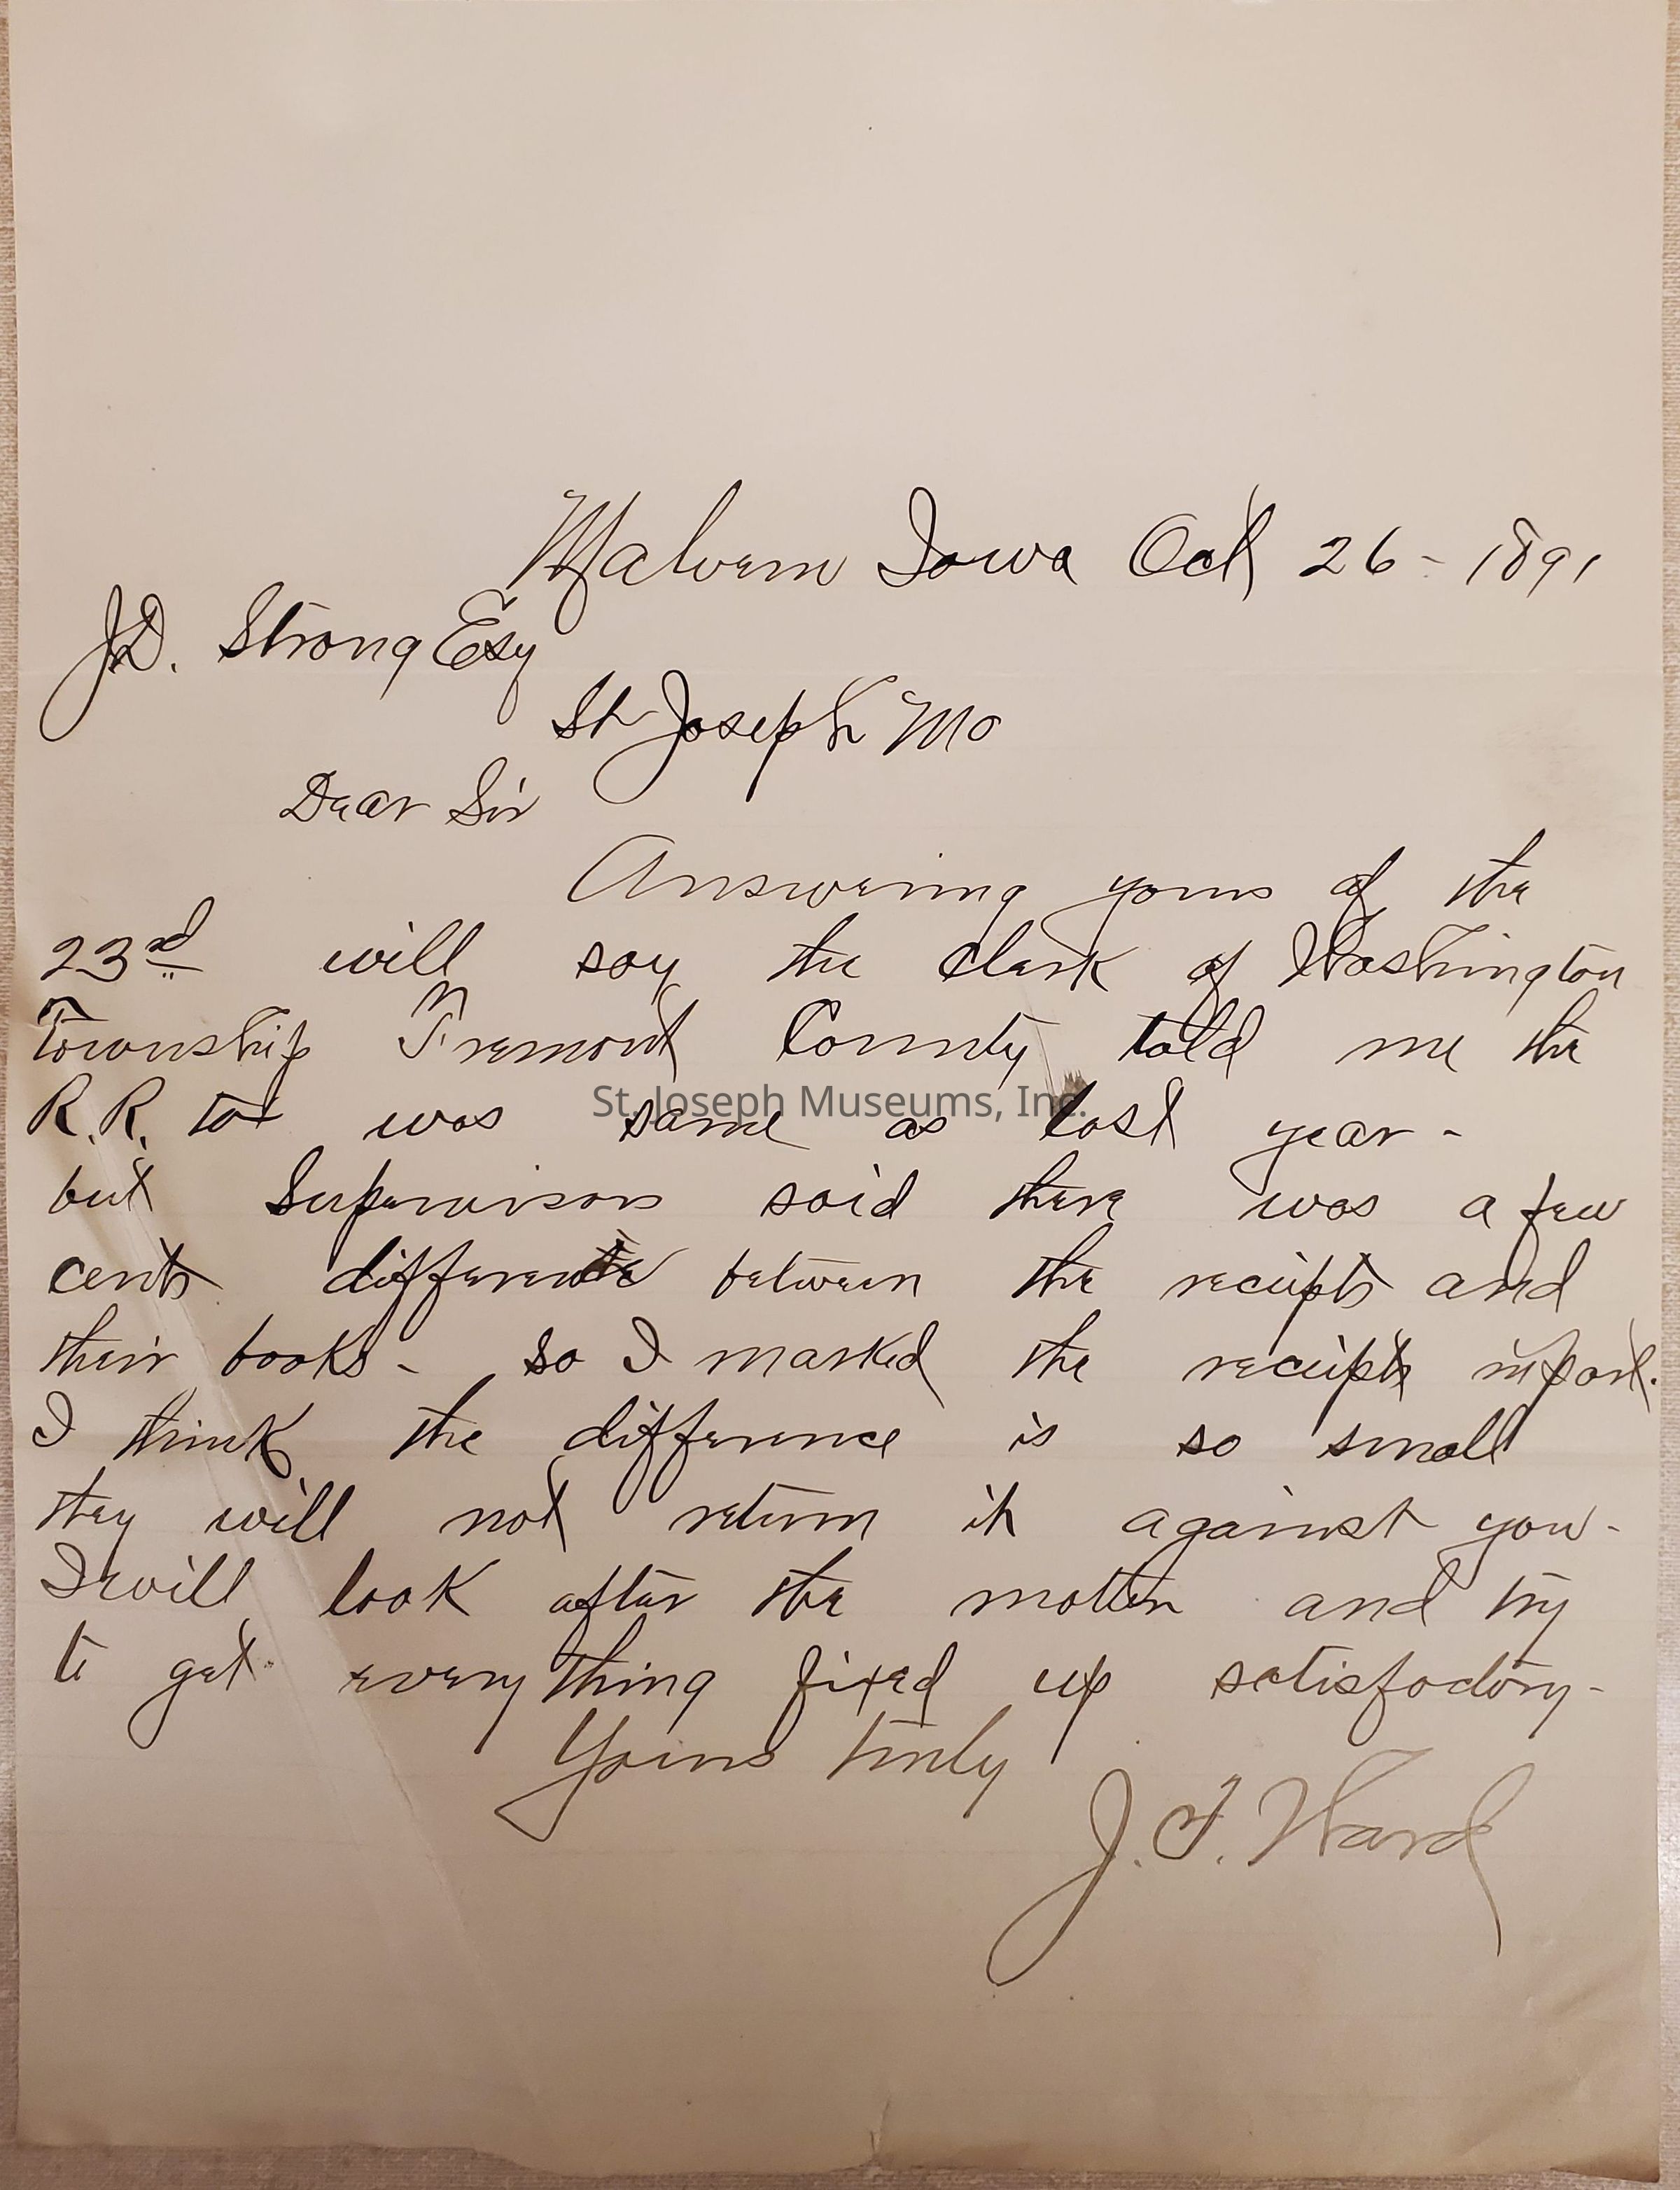 Malvern Iowa Oct 26 - 1891
J.D. Strong Esq
St Joseph Mo
Dear Sir
Answering yours of the
23rd will say the Clerk of Washington
Township Fremont County told me the
R.R. tax was same as last year -
but Supervisors said there was a few
cents difference between the receipts and
their books - so I marked the receipts in part.
I think the difference is so small
they will not return it against you -
I will look after the matter and try
to get everything fixed up satisfactory -
Yours truly
J. F. Ward
St. Joseph Museums, Inc.